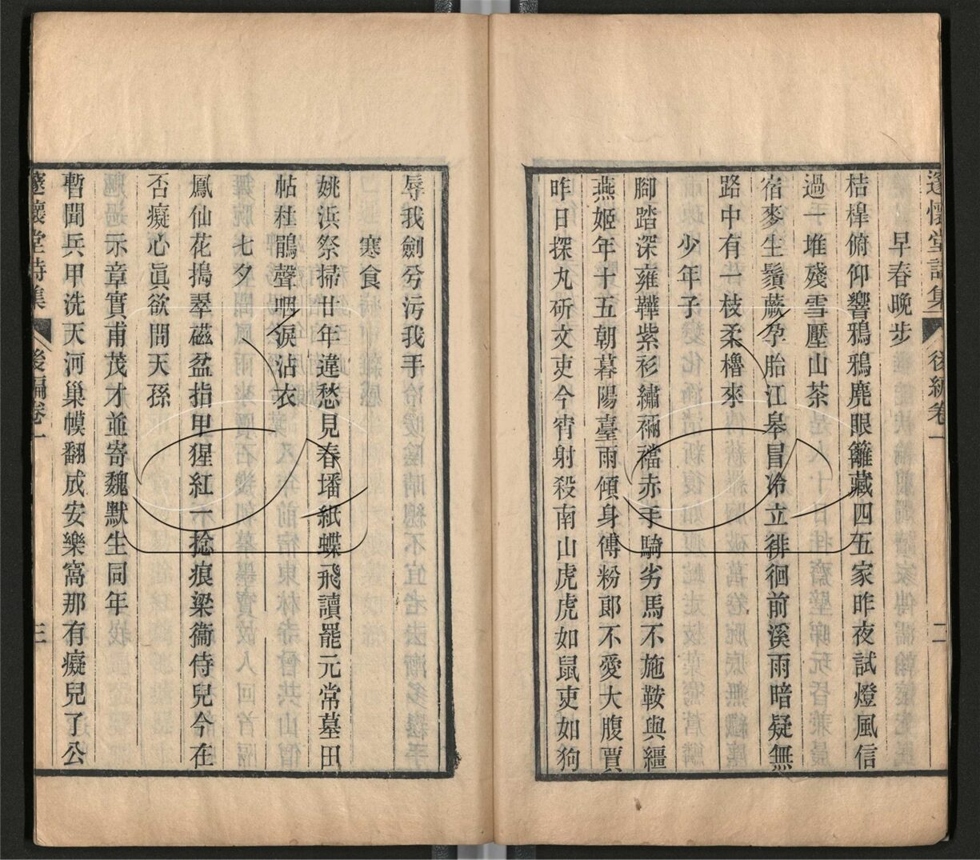 邃懷堂詩集 後編卷一 二
早春晚步
桔槔俯仰響鴉鴉麂眼籬藏四五家昨夜試燈風信
過一堆殘雪壓山茶
宿麥生鬚蕨孕胎江皋冒冷立徘徊前溪雨暗疑無
路中有一枝柔櫓來
少年子
腳踏深雍鞾紫衫繡裲襠赤手騎劣馬不施鞍與繮
燕姬年十五朝暮陽臺雨傾身傅粉郎不愛大腹賈
昨日探丸斫文吏今宵射殺南山虎虎如鼠吏如狗
辱我劍兮污我手
寒食
姚浜祭掃廿年違愁見春墦紙蝶飛讀罷元常墓田
帖杜鵑聲裏淚沾衣
七夕
鳳仙花搗翠磁盆指甲猩紅一捻痕梁衞侍兒今在
否癡心眞欲問天孫
示章實甫茂才並寄魏默生同年
暫聞兵甲洗天河巢幙翻成安樂窩那有癡兒了公
邃懷堂詩集 後編卷一 三